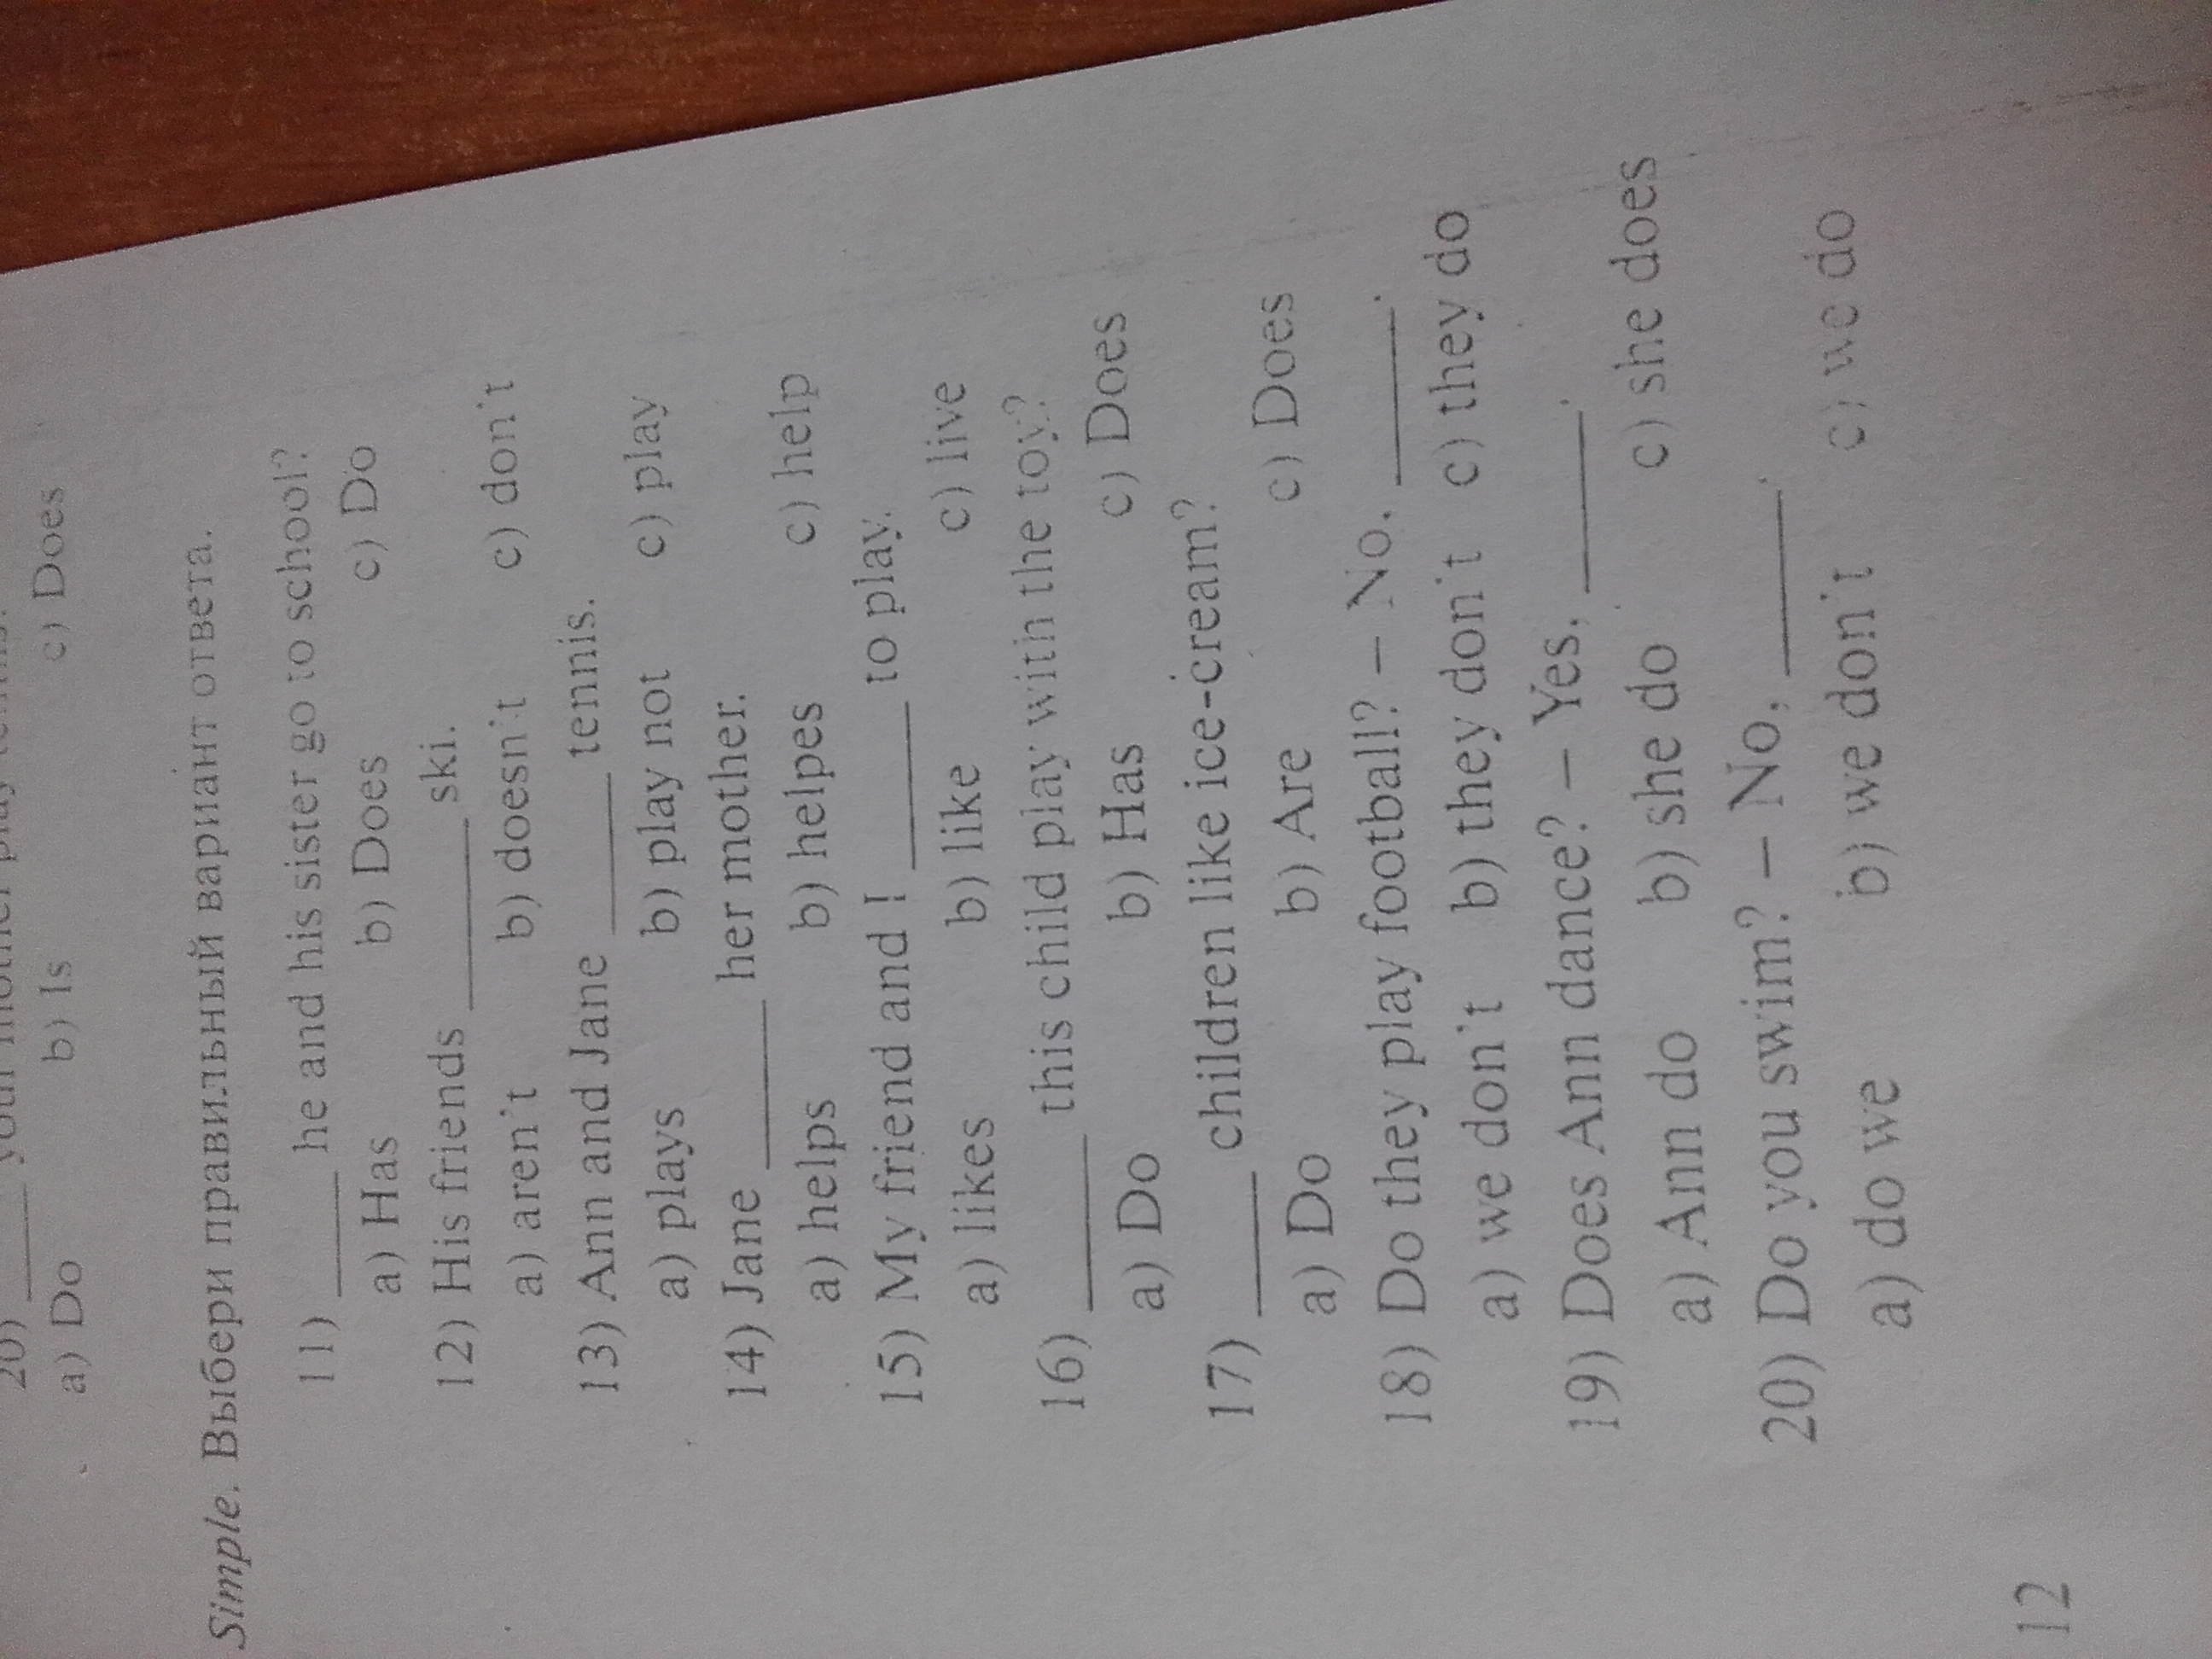 20) ____ your mother play tennis.
a) Do b) Is c) Does
Simple. Выбери правильный вариант ответа.
11) ____ he and his sister go to school?
a) Has b) Does c) Do
12) His friends ____ ski.
a) aren't b) doesn't c) don't
13) Ann and Jane ____ tennis.
a) plays b) play not c) play
14) Jane ____ her mother.
a) helps b) helpes c) help
15) My friend and I ____ to play.
a) likes b) like c) live
16) ____ this child play with the toy?
a) Do b) Has c) Does
17) ____ children like ice-cream?
a) Do b) Are c) Does
18) Do they play football? – No, ____.
a) we don't b) they don't c) they do
19) Does Ann dance? – Yes, ____.
a) Ann do b) she do c) she does
20) Do you swim? – No, ____.
a) do we b) we don't c) we do
12